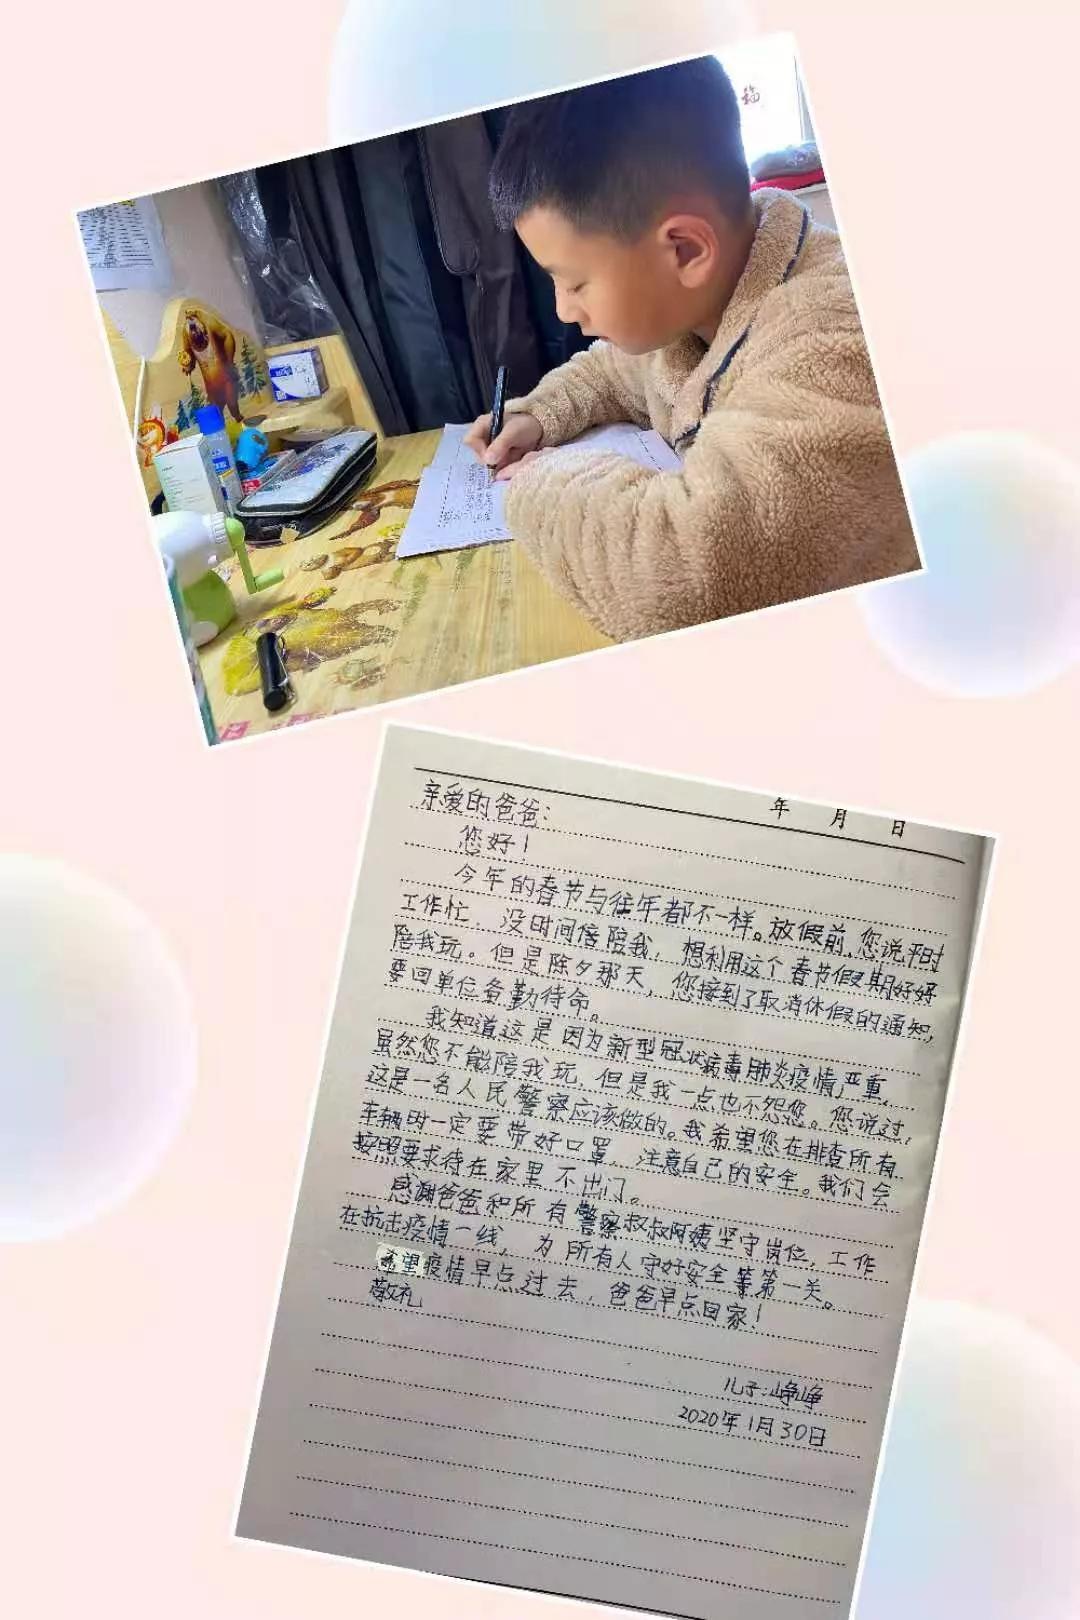 福
年 月 日
亲爱的爸爸:
您好!
今年的春节与往年都不一样。放假前,您说平时
工作忙,没时间陪我,想利用这个春节假期好好
陪我玩。但是除夕那天,您接到了取消休假的通知,
要回单位备勤待命。
我知道这是因为新型冠状病毒肺炎疫情严重,
虽然您不能陪我玩,但是我一点也不怨您。您说过,
这是一名人民警察应该做的。我希望您在排查所有
车辆时一定要带好口罩,注意自己的安全。我们会
按照要求待在家里不出门。
感谢爸爸和所有警察叔叔阿姨坚守岗位,工作
在抗击疫情一线,为所有人守好安全第一关。
希望疫情早点过去,爸爸早点回家!
敬礼
儿子:峥峥
2020年1月30日